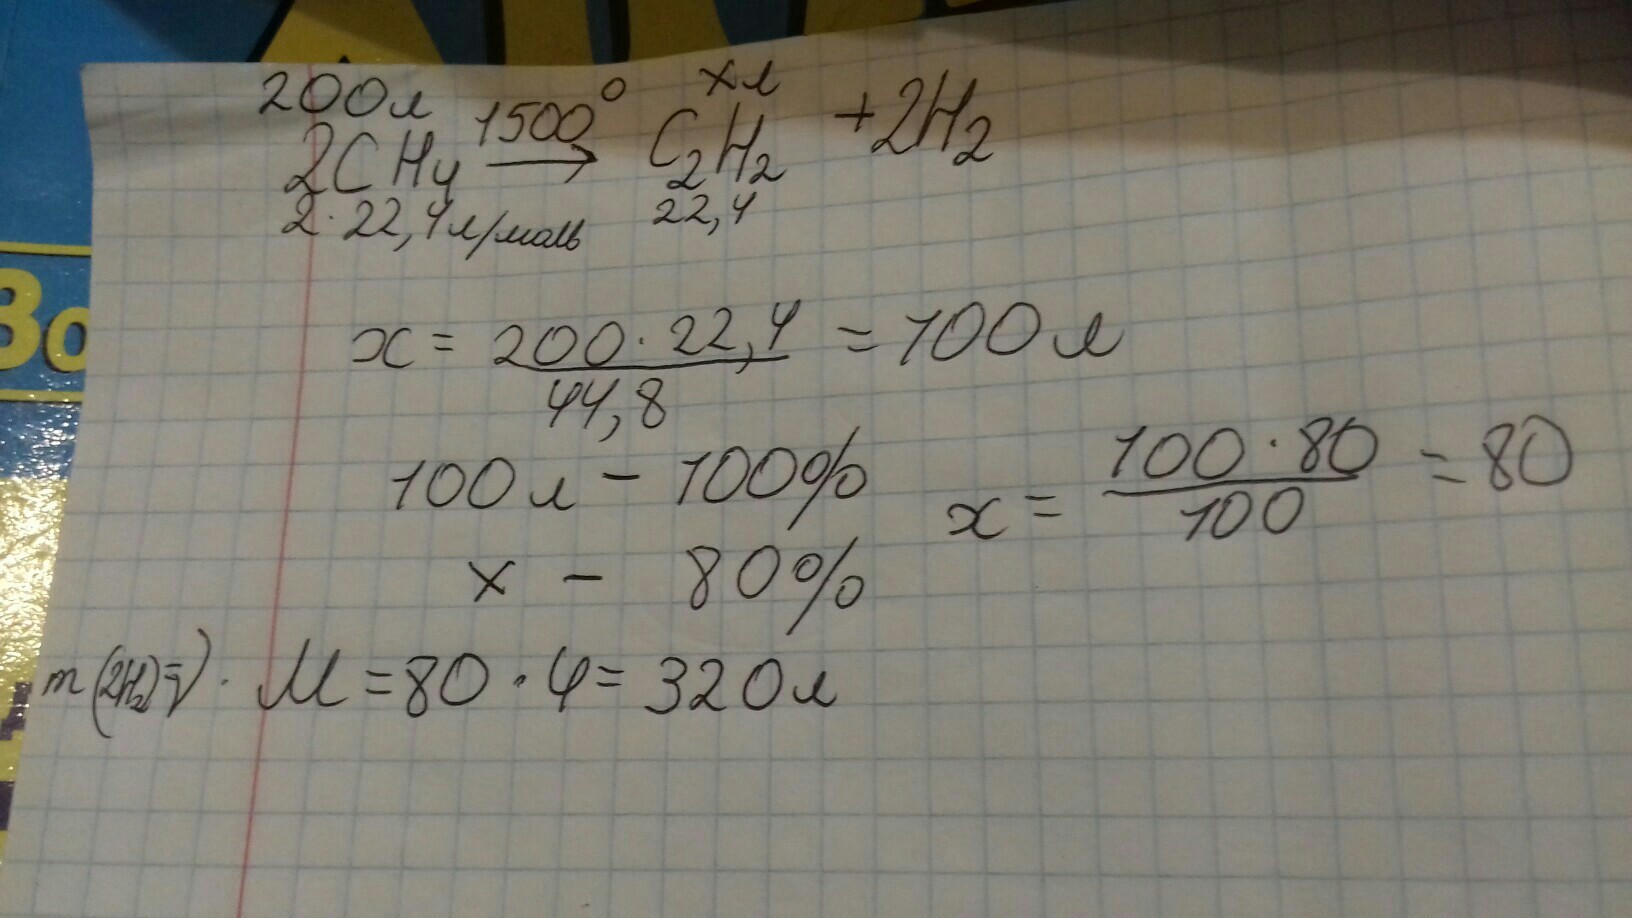 200л 1500° хл
2CH4 → C2H2 + 2H2
2·22,4л/моль 22,4
х = 200·22,4 / 44,8 = 100л
100л – 100%
х = 100·80 / 100 = 80
х – 80%
m(2H2)=V · M = 80·4 = 320л
Зо